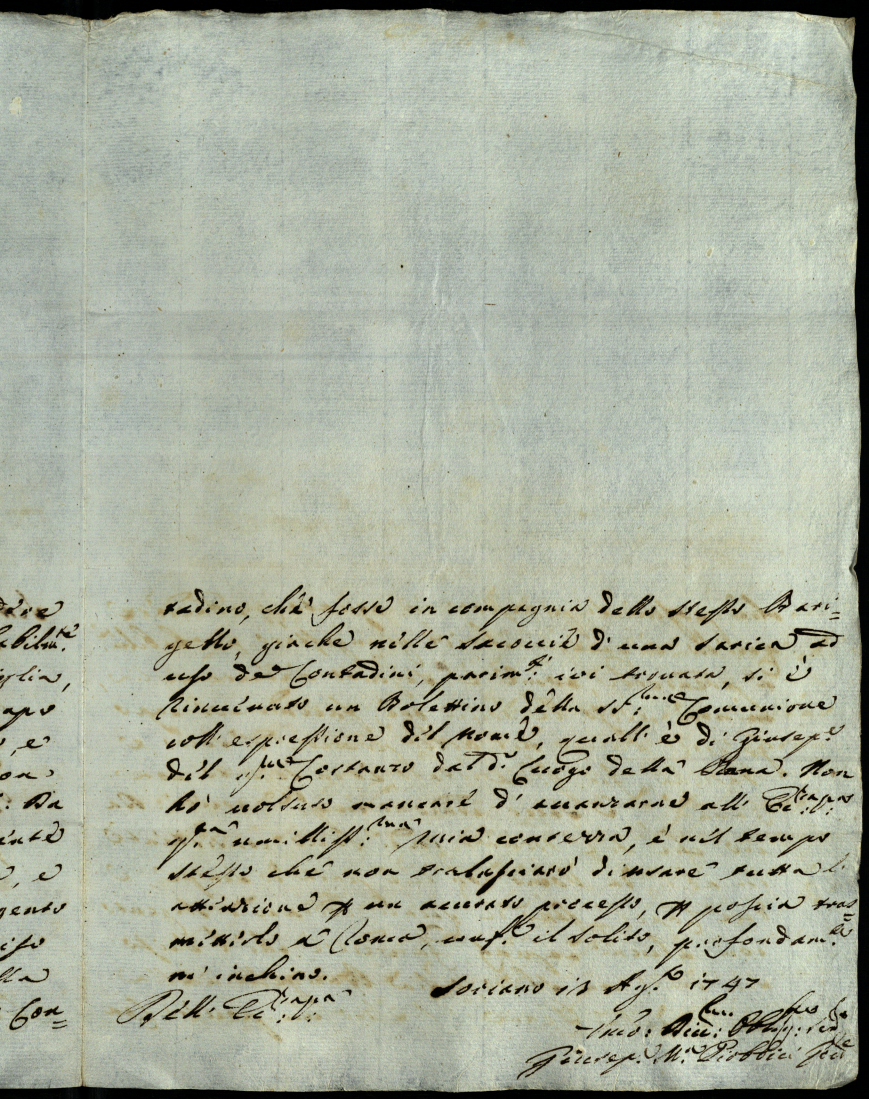 tadino, che fosse in compagnia dello stesso Bari=
gello, giache nelle saccoccie d' una sarica ad
uso de Contadini, parim.te ivi trovata, si è
rinvenuto un Bolettino della SS.ma Comunione
coll espressione del nome, quall' è di Giusep.e
del q.m Costanzo dal d.o Luogo della Penna. Non
hò voluto mancare d' avanzarne all'
umiliss.ma mia contezza, è nel tempo
stesso che non tralasciarò di usare tutta l'
attenzione un accurato processo, poscia tras=
metterlo à Roma, il solito, profondam.te
m' inchino.
Soriano 13 Ag.o 1747
Dell'
Giusep.e M.a
dare
abilm.te
iglia,
, e
Da
ente
, e
gento
lla
Con=